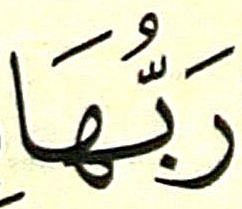 رَبُّهَا